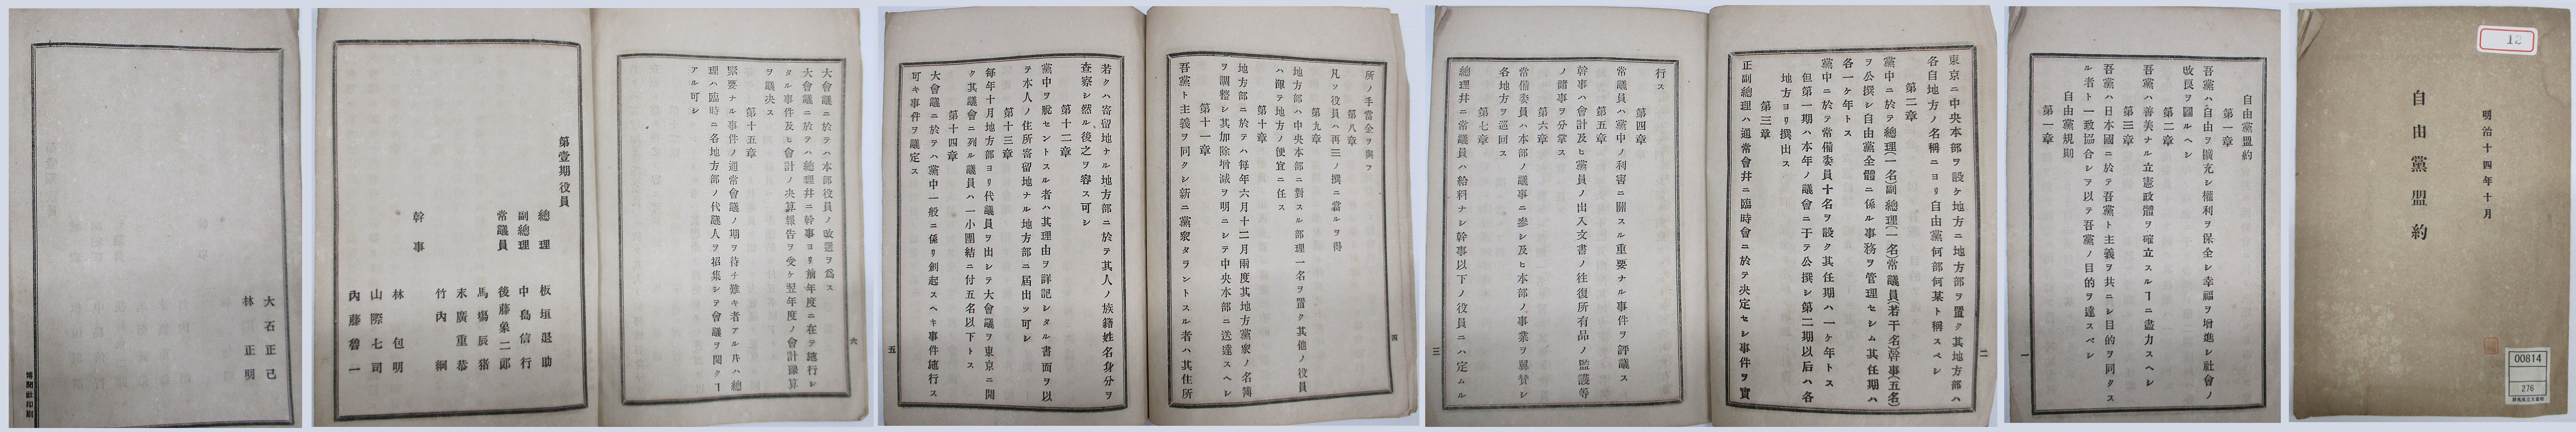 12
明治十四年十月
自由黨盟約
00814
276
自由黨盟約
第一章
吾黨ハ自由ヲ擴充シ權利ヲ保全シ幸福ヲ增進シ社會ノ
改良ヲ圖ルヘシ
第二章
吾黨ハ善美ナル立憲政體ヲ確立スルヿニ盡力スヘシ
第三章
吾黨ハ日本國ニ於テ吾黨ト主義ヲ共ニシ目的ヲ同クス
ル者ト一致協合シテ以テ吾黨ノ目的ヲ達スベシ
自由黨規則
第一章
一
東京ニ中央本部ヲ設ケ地方ニ地方部ヲ置ク其地方部ハ
各自地方ノ名稱ニヨリ自由黨何部何某ト稱スベシ
第二章
黨中ニ於テ總理(一名)副總理(一名)常議員(若干名)幹事(五名)
ヲ公撰シ自由黨全體ニ係ル事務ヲ管理セシム其任期ハ
各一ケ年トス
黨中ニ於テ常備委員十名ヲ設ク其任期ハ一ケ年トス
但第一期ハ本年ノ議會ニ于テ公撰シ第二期以后ハ各
地方ヨリ撰出ス
第三章
正副總理ハ通常會幷ニ臨時會ニ於テ決定セシ事件ヲ實
二
行ス
第四章
常議員ハ黨中ノ利害ニ關スル重要ナル事件ヲ評議ス
第五章
幹事ハ會計及ヒ黨員ノ出入文書ノ往復所有品ノ監護等
ノ諸事ヲ分掌ス
第六章
常備委員ハ本部ノ議事ニ參シ及ヒ本部ノ事業ヲ翼賛シ
各地方ヲ巡回ス
第七章
總理幷ニ常議員ハ給料ナシ幹事以下ノ役員ニハ定ムル
三
所ノ手當金ヲ與フ
第八章
凡ソ役員ハ再三ノ撰ニ當ルヲ得
第九章
地方部ハ中央本部ニ對スル部理一名ヲ置ク其他ノ役員
ハ御テ地方ノ便宜ニ任ス
第十章
地方部ニ於テハ每年六月十二月兩度其地方黨衆ノ名簿
ヲ調整シ其加除增減ヲ明ニシテ中央本部ニ送達スヘシ
第十一章
吾黨ト主義ヲ同クシ新ニ黨衆タラントスル者ハ其住所
四
若クハ寄留地ナル地方部ニ於テ其人ノ族籍姓名身分ヲ
査察シ然ル後之ヲ容ス可シ
第十二章
黨中ヲ脫セントスル者ハ其理由ヲ詳記シタル書面ヲ以
テ本人ノ住所寄留地ナル地方部ニ屆出ツ可シ
第十三章
每年十月地方部ヨリ代議員ヲ出シテ大會議ヲ東京ニ開
ク其議會ニ列ル議員ハ一小團結ニ付五名以下トス
第十四章
大會議ニ於テハ黨中一般ニ係リ創起スヘキ事件施行ス
可キ事件ヲ議定ス
五
大會議ニ於テハ本部役員ノ改選ヲ爲ス
大會議ニ於テハ總理幷ニ幹事ヨリ前年度ニ在テ施行シ
タル事件及ヒ會計ノ决算報告ヲ受ケ翌年度ノ會計豫算
ヲ議决ス
第十五章
緊要ナル事件ノ通常會議ノ期ヲ待チ難キ者アル片ハ總
理ハ臨時ニ各地方部ノ代議人ヲ招集シテ會議ヲ開クヿ
アル可シ
六
第壹期役員
總理 板垣退助
副總理 中島信行
常議員 後藤象二郎
馬塲辰猪
末廣重恭
竹內綱
幹事
林包明
山際七司
內藤魯一
大石正己
林正明
博聞社印刷